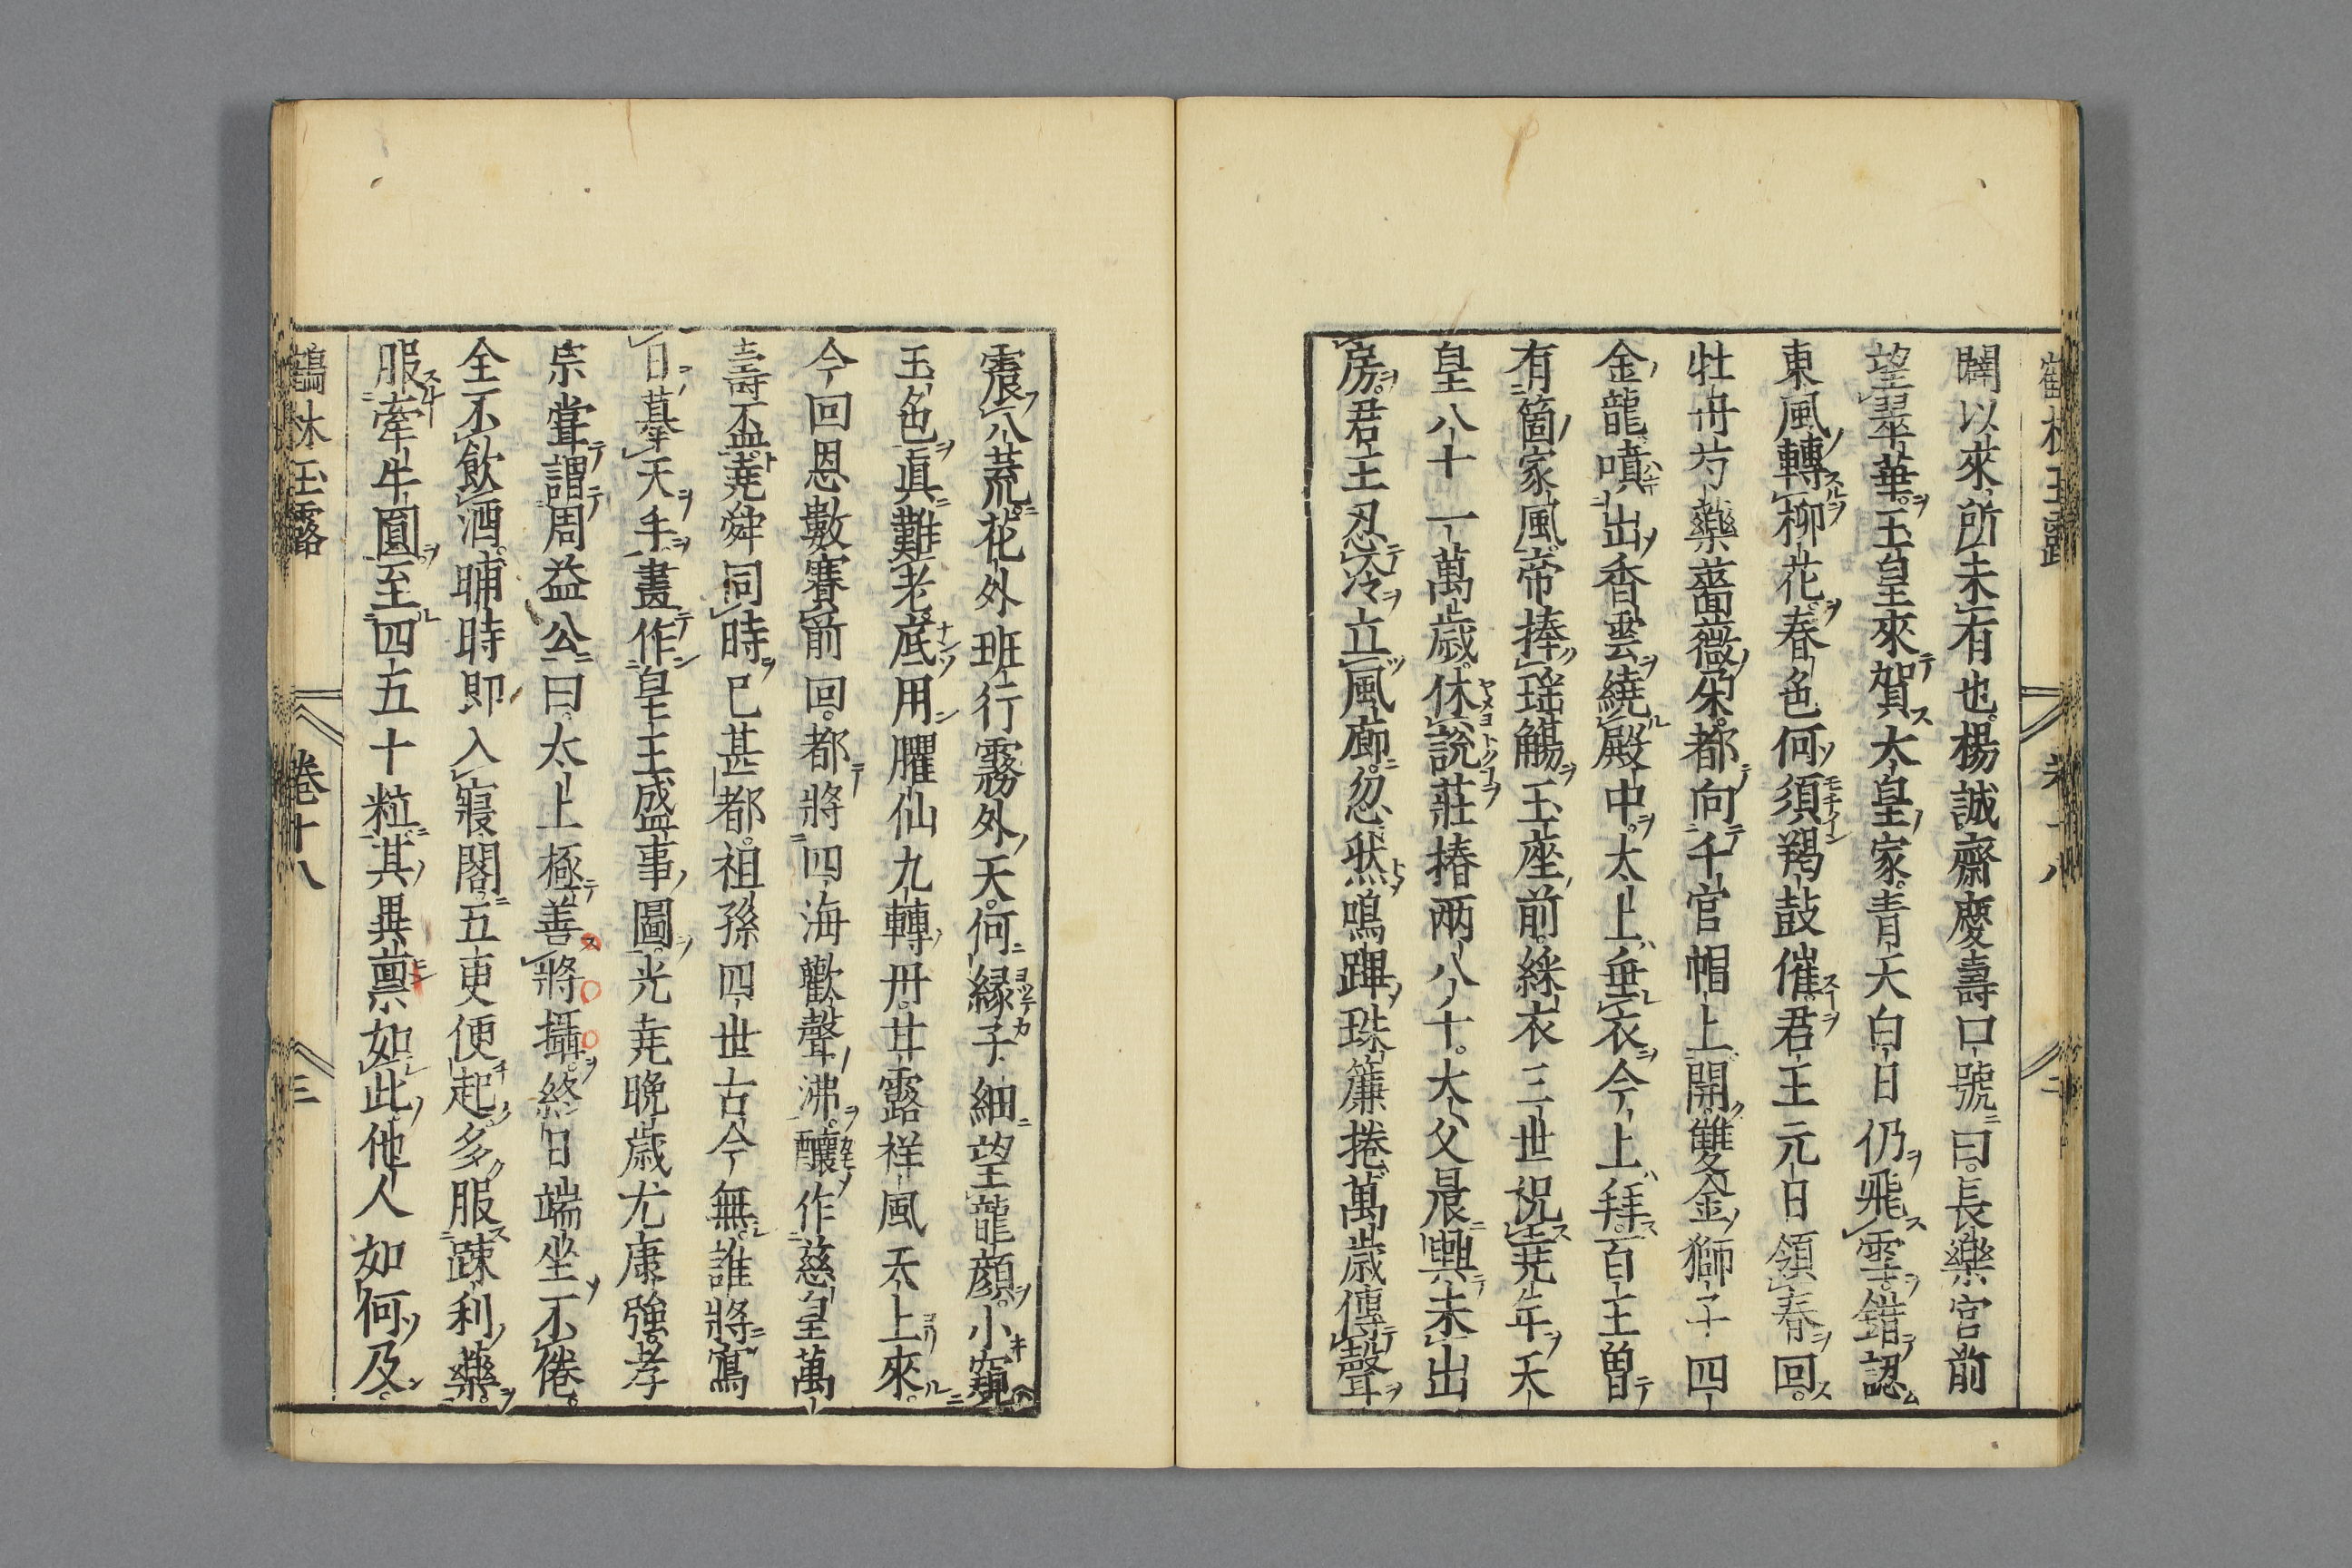 闢以來所未有也楊誠齋慶壽口號曰長樂宮前
望翠華玉皇來賀太皇家青天白日仍飛雪錯認
東風轉柳花春色何須羯鼓催君王元日領春回
牡丹芍藥薔薇朶都向千官帽上開雙金獅子四
金龍噴出香雲繞殿中太上垂衣今上拜百王曽
有箇家風帝捧瑶觴玉座前綵衣三世祝尭年天
皇八十一萬歲休說莊椿兩八十大父晨興未出
房君王忍冷立風廊忽然鳴蹕珠簾捲萬歲傳聲
震八荒花外班行霧外天何緣子細望龍顔小窺
玉色眞難老底用臞仙九轉丹甘露祥風天上來
今回恩數賽前回都將四海歡聲沸釀作慈皇萬
壽盃尭舜同時已甚都祖孫四世古今無誰將寫
日摹天手畫作皇王盛事圖光尭晩歲尤康強孝
宗嘗謂周益公曰太上極善將攝終日端坐不倦
全不飲酒晡時即入寢閣五更便起多服踈利藥
服牽牛圓至四五十粒其異禀如此他人如何及
鶴林玉露 卷十八 三